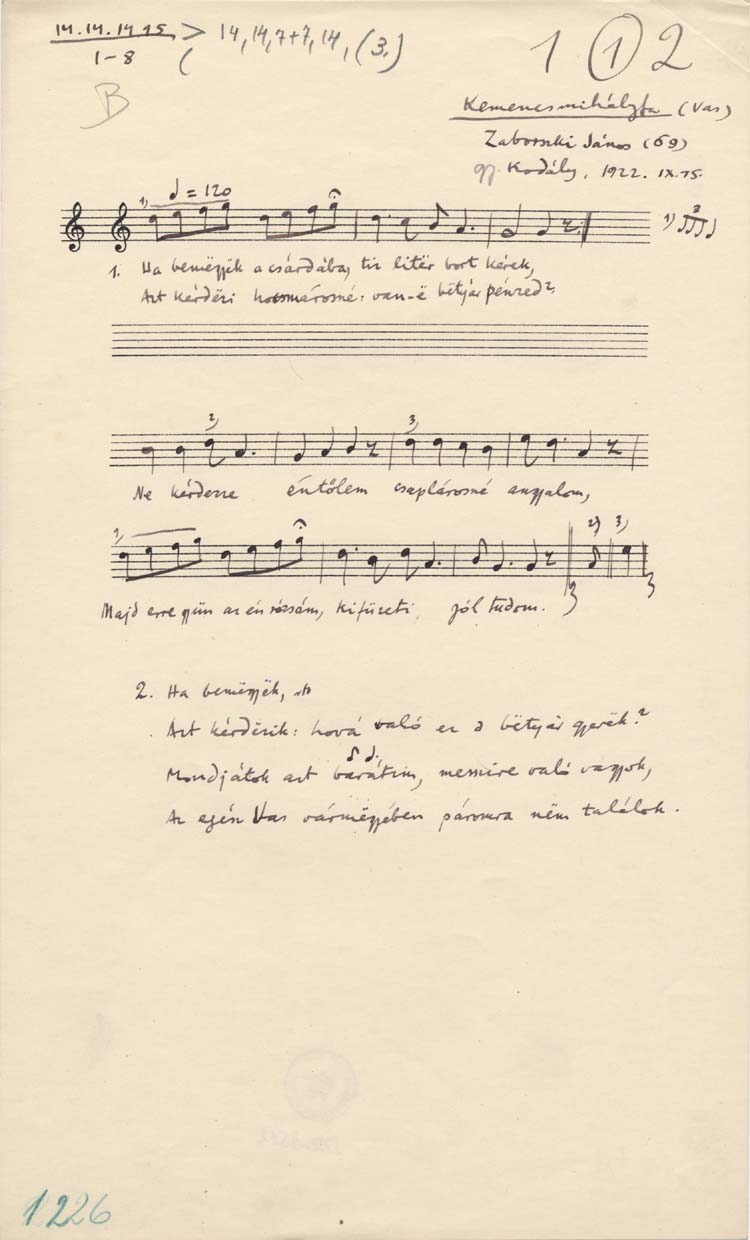 14.14.14 15 > 14, 14, 7+7, 14, (3.)
1-8 (
B
1 1 2
Kemenesmihályfa (Vas)
Zaborszki János (69)
gy. Kodály, 1922. IX.15.
1) ♩ = 120
1) 3
1. Ha bemëgyëk a csárdába, tíz litër bort kérek,
Azt kérdëzi kocsmárosné: van-ë bëtyár pénzed?
2) 3)
Ne kérdezze éntőlem csaplárosné angyalom,
1) 2) 3)
Majd erre gyün az én rózsám, kifizeti, jól tudom.
2. Ha bemëgyëk, stb
Azt kérdëzik: hová való ez a bëtyár gyerëk?
Mondjátok azt barátim, messzire való vagyok,
Az egész Vas vármëgyében páromra nëm találok.
1226